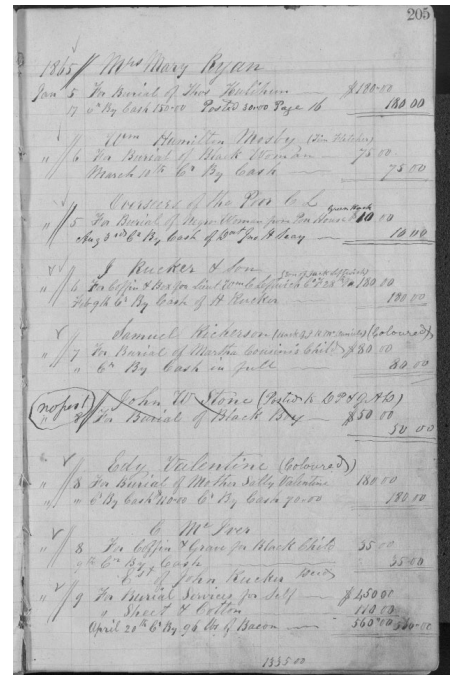 205
1865 // Mrs Mary Ryan
Jan 5 For Burial of Thos Hutcherson $180.00
17 Cr By Cash 150.00 Posted 30.00 Page 16 180 00
Wm Hamilton Mosby (Tim Fletcher)
" 6 For Burial of Black Woman 75.00
March 11th Cr By Cash 75.00
Overseers of the Poor C L
" 5 For Burial of Negro Woman from Poor House 10 00
Aug 3rd Cr By Cash of Jas H 10.00
J Rucker & Son
" 6 For Coffin & Box for Lieut 180.00
Feb 9th Cr By Cash of H Rucker 180.00
Samuel (Coloured)
" 7 For Burial of Martha Child $80.00
" Cr By Cash in full 80.00
no post // John W Stone (Posted to D P & J A D)
" 8 For Burial of Black Boy $50.00
50 00
Edy Valentine (Coloured)
" 8 For Burial of Mother Sally Valentine 180.00
" " Cr By Cash 110.00 Cr By Cash 70.00 180.00
C McIver
" 8 For Coffin & Grave for Black Child 35.00
9th Cr By Cash 35.00
Est of John Rucker Decd
" 9 For Burial Services for Self $450.00
" Sheet & Cotton 110.00
April 20th Cr By 96 lbs of Bacon 560.00 560.00
1335.00